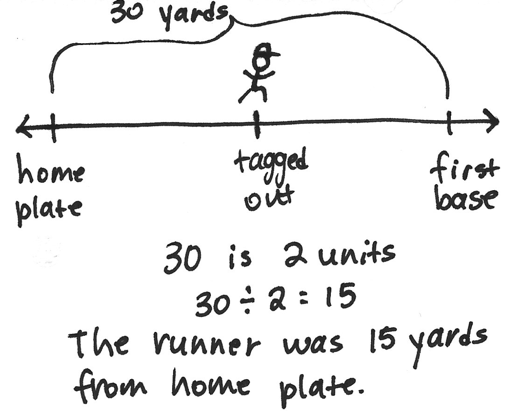 30 yards
home plate
tagged out
first base
30 is 2 units
30 ÷ 2 = 15
The runner was 15 yards
from home plate.